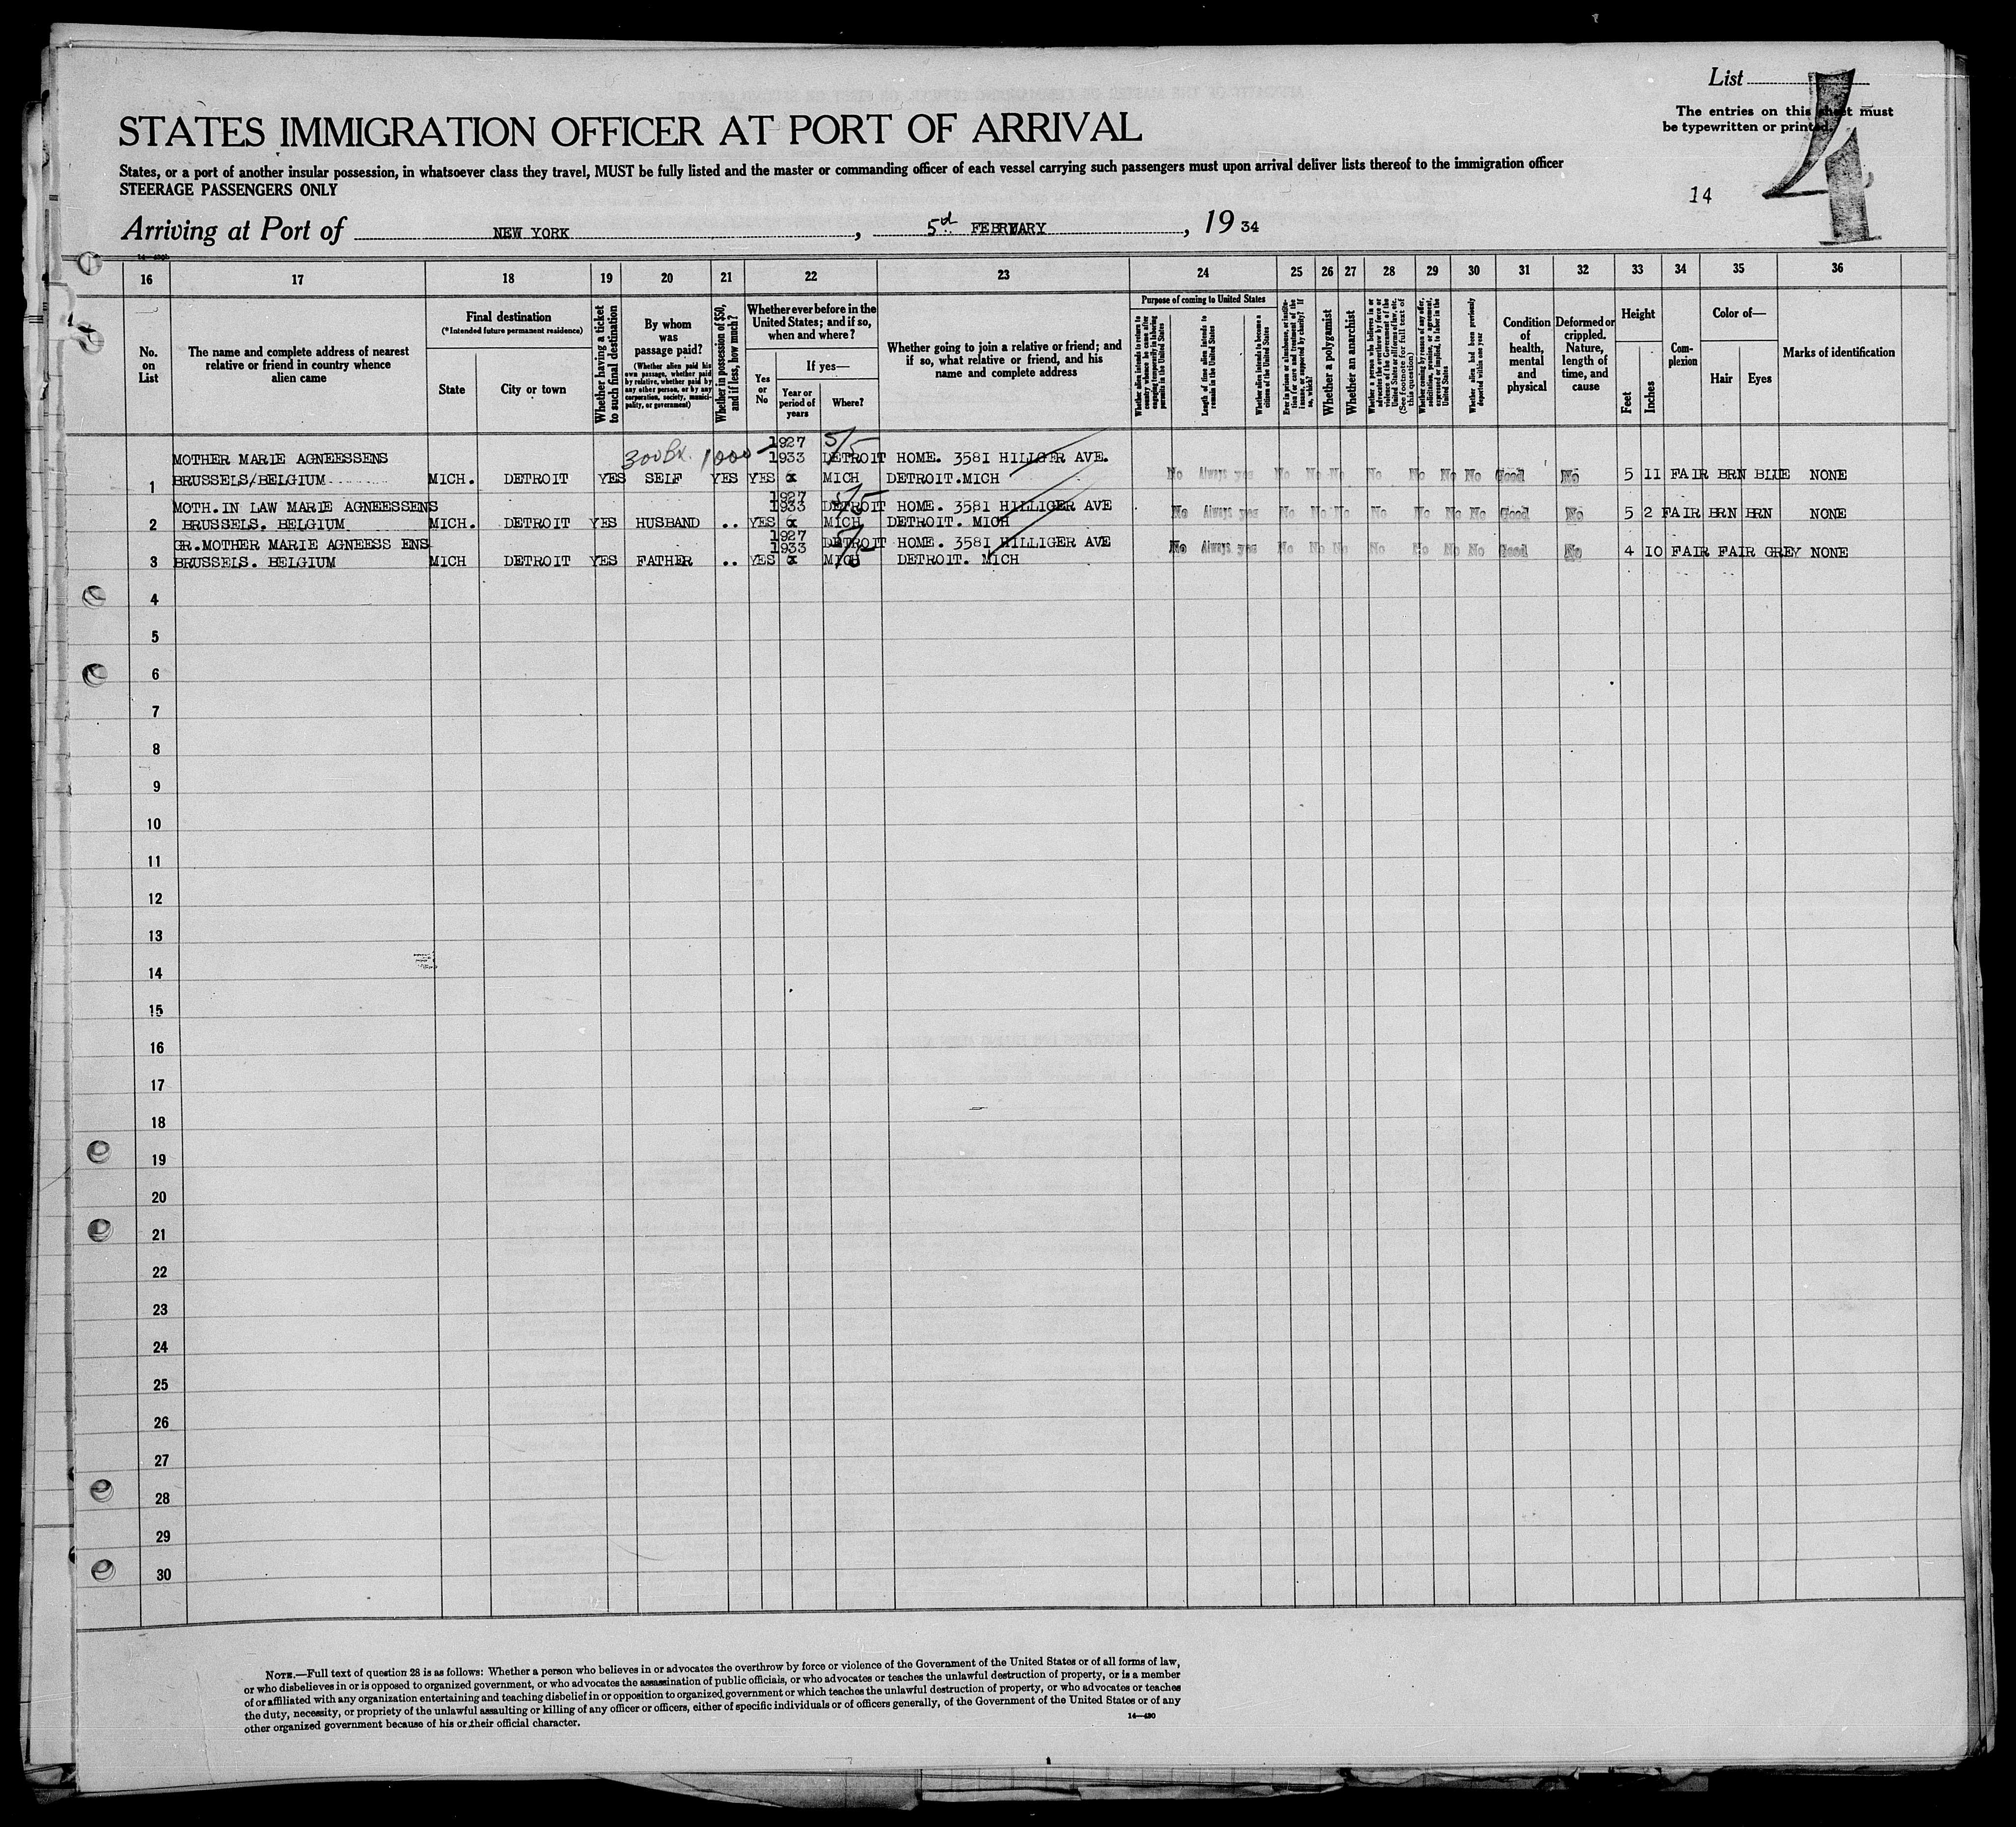 List
The entries on this sheet must
be typewritten or printed.
4
14
STATES IMMIGRATION OFFICER AT PORT OF ARRIVAL
States, or a port of another insular possession, in whatsoever class they travel, MUST be fully listed and the master or commanding officer of each vessel carrying such passengers must upon arrival deliver lists thereof to the immigration officer
STEERAGE PASSENGERS ONLY
Arriving at Port of NEW YORK, 5th FEBRUARY, 19 34
16 17 18 19 20 21 22 23 24 25 26 27 28 29 30 31 32 33 34 35 36
No. on List
The name and complete address of nearest relative or friend in country whence alien came
Final destination
(*Intended future permanent residence)
State
City or town
Whether having a ticket to such final destination
By whom was passage paid?
(Whether alien paid his own passage, whether paid by relative, whether paid by any other person, or by any corporation, society, municipality, or government)
Whether in possession of $50, and if less, how much?
Whether ever before in the United States; and if so, when and where?
Yes or No
If yes—
Year or period of years
Where?
Whether going to join a relative or friend; and if so, what relative or friend, and his name and complete address
Purpose of coming to United States
Whether alien intends to return to country whence he came after engaging temporarily in laboring pursuits in the United States
Length of time alien intends to remain in the United States
Whether alien intends to become a citizen of the United States
Ever in prison or almshouse, or institution for care and treatment of the insane, or supported by charity? If so, which?
Whether a polygamist
Whether an anarchist
Whether a person who believes in or advocates the overthrow by force or violence of the Government of the United States or all forms of law, etc. (See footnote for full text of this question)
Whether coming by reason of any offer, solicitation, promise, or agreement, expressed or implied, to labor in the United States
Whether alien had been previously deported within one year
Condition of health, mental and physical
Deformed or crippled. Nature, length of time, and cause
Height
Feet
Inches
Complexion
Color of—
Hair
Eyes
Marks of identification
MOTHER MARIE AGNEESSENS 300 1000 1927 1933 5/5 DETROIT HOME. 3581 HILLGER AVE.
1 BRUSSELS/BELGIUM MICH. DETROIT YES SELF YES YES & MICH DETROIT.MICH No Always yes No No No No No No No Good No 5 11 FAIR BRN BLUE NONE
MOTH.IN LAW MARIE AGNEESSENS 1927 1933 5/5 DETROIT HOME. 3581 HILLIGER AVE
2 BRUSSELS. BELGIUM MICH. DETROIT YES HUSBAND .. YES & MICH DETROIT. MICH No Always yes No No No No No No No Good No 5 2 FAIR BRN BRN NONE
GR.MOTHER MARIE AGNEESS ENS 1927 1933 DETROIT HOME. 3581 HILLIGER AVE
3 BRUSSELS. BELGIUM MICH DETROIT YES FATHER .. YES & MICH DETROIT. MICH No Always yes No No No No No No No Good No 4 10 FAIR FAIR GREY NONE
4
5
6
7
8
9
10
11
12
13
14
15
16
17
18
19
20
21
22
23
24
25
26
27
28
29
30
NOTE.—Full text of question 28 is as follows: Whether a person who believes in or advocates the overthrow by force or violence of the Government of the United States or of all forms of law,
or who disbelieves in or is opposed to organized government, or who advocates the assassination of public officials, or who advocates or teaches the unlawful destruction of property, or is a member
of or affiliated with any organization entertaining and teaching disbelief in or opposition to organized government or which teaches the unlawful destruction of property, or who advocates or teaches
the duty, necessity, or propriety of the unlawful assaulting or killing of any officer or officers, either of specific individuals or of officers generally, of the Government of the United States or of any
other organized government because of his or their official character.
14—430